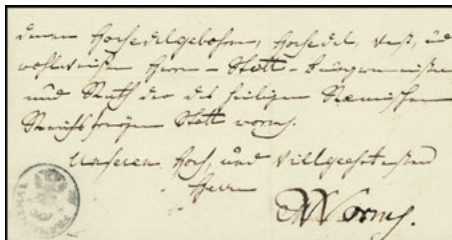 denen Hochedelgebohrn, Hochedel, Vest, und
wohlweisen Herrn Statt-burgermeister
und Rath der des heiligen Roemischen
Reichs freyen Statt worms.
Unseren Hoch, und Villgeehrtesten
Herrn
Worms.